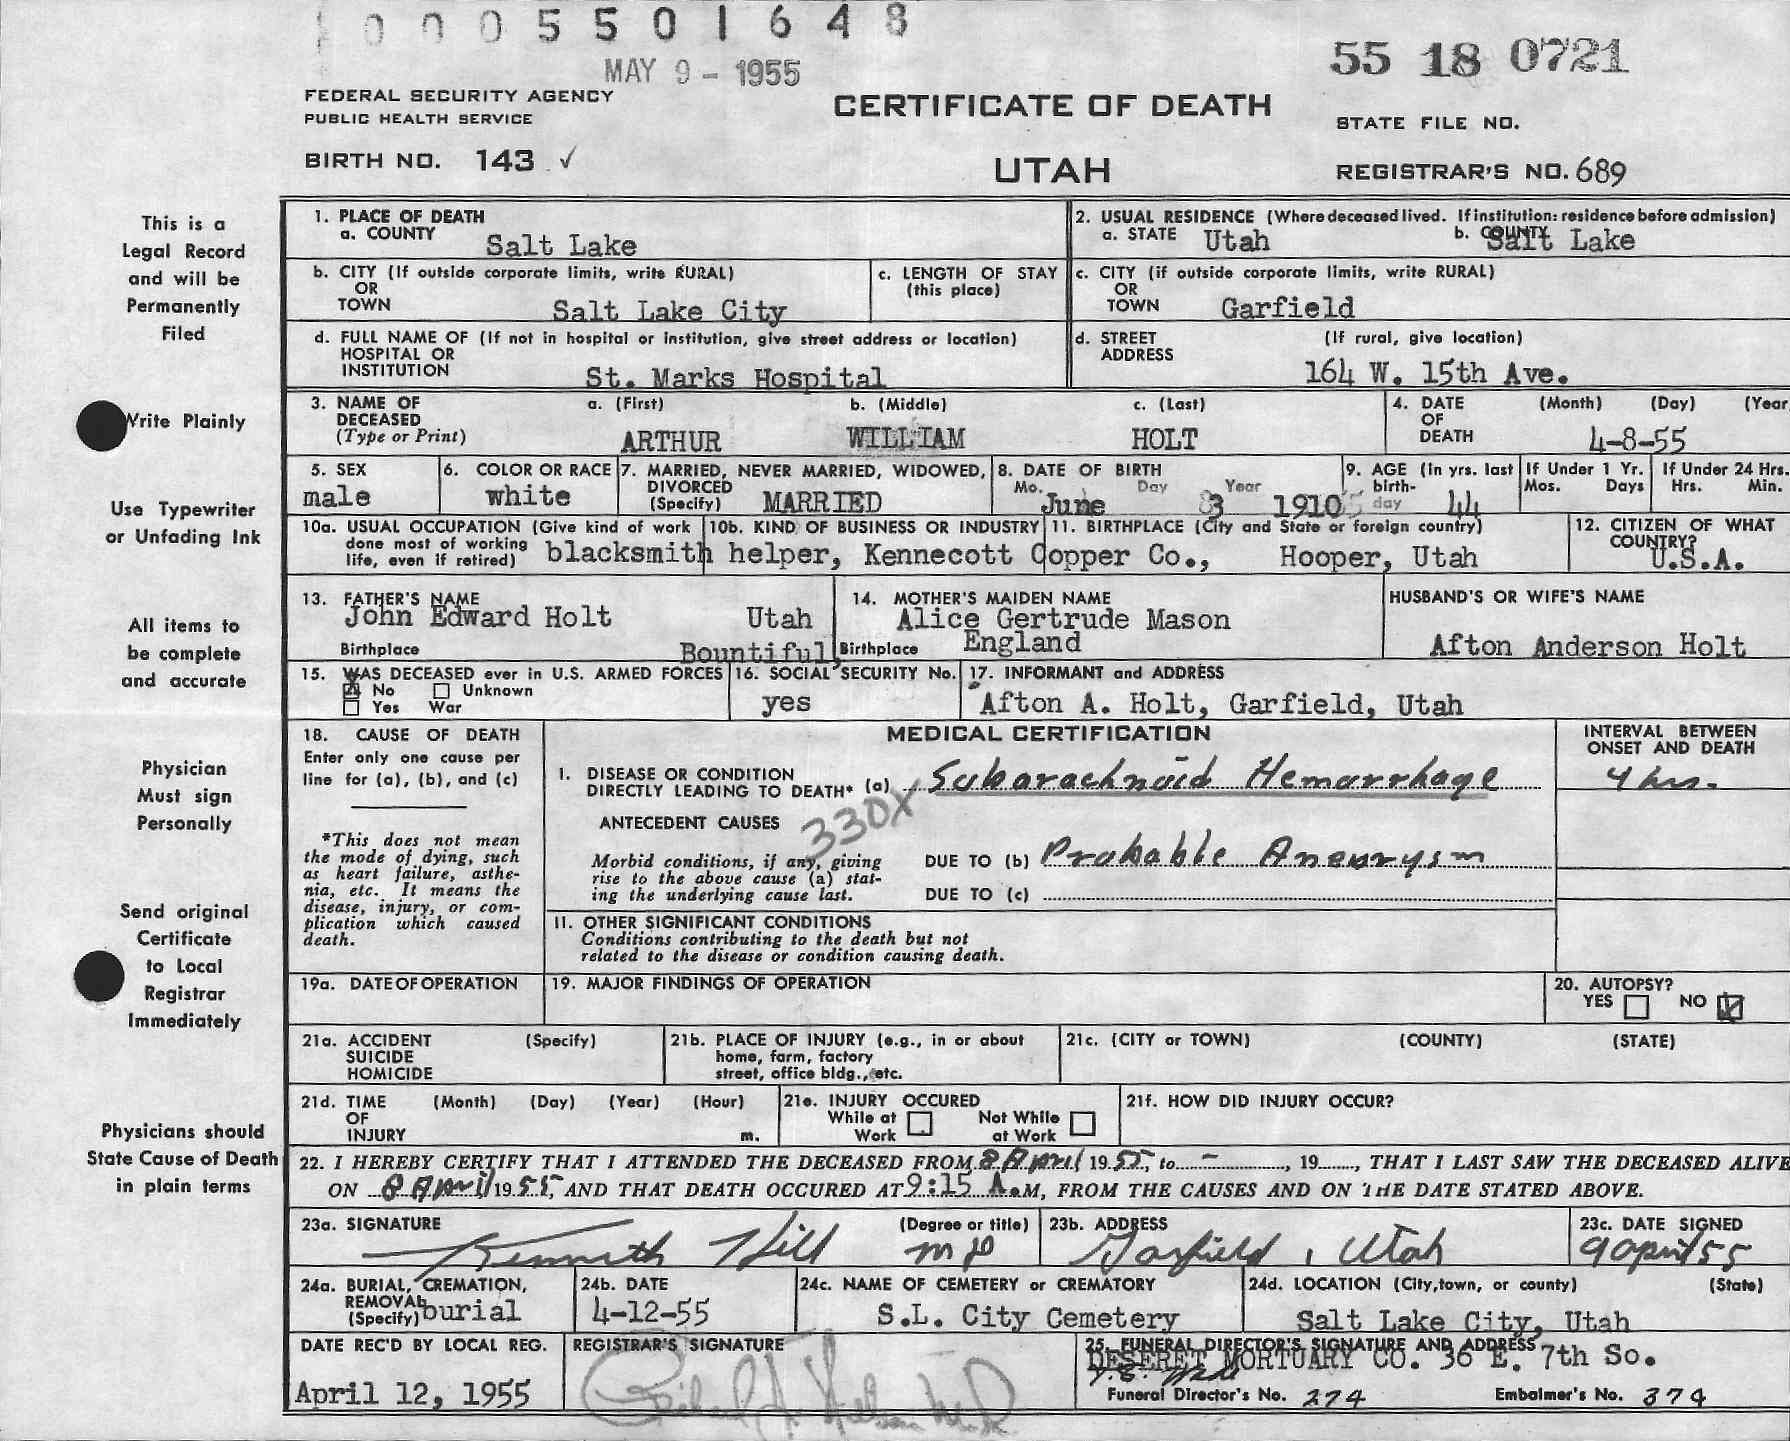 0005501648
MAY 9 - 1955
55 18 0721
FEDERAL SECURITY AGENCY
PUBLIC HEALTH SERVICE
CERTIFICATE OF DEATH
STATE FILE NO.
BIRTH NO. 143 ✓
UTAH
REGISTRAR'S NO. 689
This is a
Legal Record
and will be
Permanently
Filed
Write Plainly
Use Typewriter
or Unfading Ink
All items to
be complete
and accurate
Physician
Must sign
Personally
Send original
Certificate
to Local
Registrar
Immediately
Physicians should
State Cause of Death
in plain terms
1. PLACE OF DEATH
a. COUNTY Salt Lake
2. USUAL RESIDENCE (Where deceased lived. If institution: residence before admission)
a. STATE Utah b. COUNTY Salt Lake
b. CITY (If outside corporate limits, write RURAL)
OR
TOWN Salt Lake City
c. LENGTH OF STAY
(this place)
c. CITY (if outside corporate limits, write RURAL)
OR
TOWN Garfield
d. FULL NAME OF (If not in hospital or institution, give street address or location)
HOSPITAL OR
INSTITUTION St. Marks Hospital
d. STREET (If rural, give location)
ADDRESS
164 W. 15th Ave.
3. NAME OF DECEASED (Type or Print)
a. (First) b. (Middle) c. (Last)
ARTHUR WILLIAM HOLT
4. DATE OF DEATH (Month) (Day) (Year
4-8-55
5. SEX
male
6. COLOR OR RACE
white
7. MARRIED, NEVER MARRIED, WIDOWED,
DIVORCED
(Specify) MARRIED
8. DATE OF BIRTH
Mo. Day Year
June 3 1910
9. AGE (In yrs. last
birth-
day 44
If Under 1 Yr.
Mos. Days
If Under 24 Hrs.
Hrs. Min.
10a. USUAL OCCUPATION (Give kind of work
done most of working
life, even if retired)
10b. KIND OF BUSINESS OR INDUSTRY
blacksmith helper, Kennecott Copper Co.,
11. BIRTHPLACE (City and State or foreign country)
Hooper, Utah
12. CITIZEN OF WHAT
COUNTRY?
U.S.A.
13. FATHER'S NAME
John Edward Holt Utah
Birthplace Bountiful,
14. MOTHER'S MAIDEN NAME
Alice Gertrude Mason
Birthplace England
HUSBAND'S OR WIFE'S NAME
Afton Anderson Holt
15. WAS DECEASED ever in U.S. ARMED FORCES
No Unknown
Yes War
16. SOCIAL SECURITY No.
yes
17. INFORMANT and ADDRESS
Afton A. Holt, Garfield, Utah
18. CAUSE OF DEATH
Enter only one cause per
line for (a), (b), and (c)
*This does not mean
the mode of dying, such
as heart failure, asthe-
nia, etc. It means the
disease, injury, or com-
plication which caused
death.
MEDICAL CERTIFICATION
INTERVAL BETWEEN
ONSET AND DEATH
I. DISEASE OR CONDITION
DIRECTLY LEADING TO DEATH* (a) Subarachnoid Hemorrhage 4 hrs.
330X
ANTECEDENT CAUSES
Morbid conditions, if any, giving
rise to the above cause (a) stat-
ing the underlying cause last.
DUE TO (b) Probable Aneurysm
DUE TO (c)
II. OTHER SIGNIFICANT CONDITIONS
Conditions contributing to the death but not
related to the disease or condition causing death.
19a. DATE OF OPERATION
19. MAJOR FINDINGS OF OPERATION
20. AUTOPSY?
YES NO
21a. ACCIDENT (Specify)
SUICIDE
HOMICIDE
21b. PLACE OF INJURY (e.g., in or about
home, farm, factory
street, office bldg., etc.
21c. (CITY or TOWN) (COUNTY) (STATE)
21d. TIME (Month) (Day) (Year) (Hour)
OF
INJURY m.
21e. INJURY OCCURED
While at Work Not While at Work
21f. HOW DID INJURY OCCUR?
22. I HEREBY CERTIFY THAT I ATTENDED THE DECEASED FROM 8 April 1955, to - , 19, THAT I LAST SAW THE DECEASED ALIVE
ON 8 April 1955, AND THAT DEATH OCCURED AT 9:15 A.M, FROM THE CAUSES AND ON THE DATE STATED ABOVE.
23a. SIGNATURE (Degree or title)
Kenneth Hill MD
23b. ADDRESS
Garfield, Utah
23c. DATE SIGNED
9 April 55
24a. BURIAL, CREMATION,
REMOVAL
(Specify) burial
24b. DATE
4-12-55
24c. NAME OF CEMETERY or CREMATORY
S.L. City Cemetery
24d. LOCATION (City, town, or county) (State)
Salt Lake City, Utah
DATE REC'D BY LOCAL REG.
April 12, 1955
REGISTRAR'S SIGNATURE
25. FUNERAL DIRECTOR'S SIGNATURE AND ADDRESS
DESERET MORTUARY CO. 36 E. 7th So.
Funeral Director's No. 274 Embalmer's No. 374